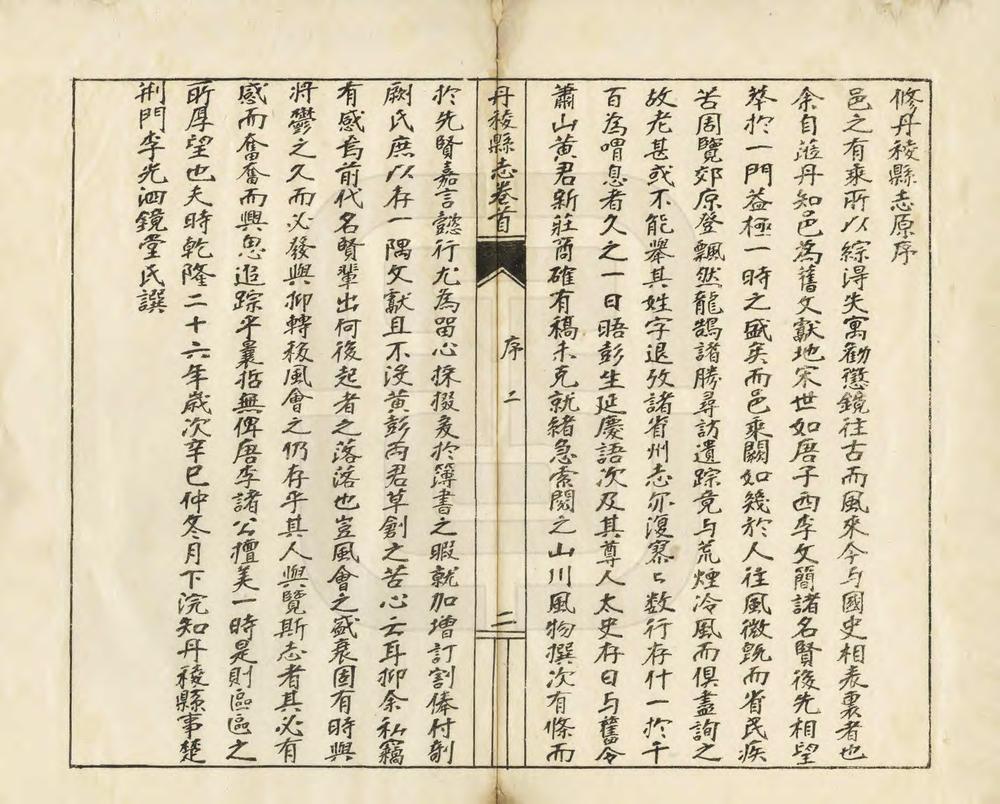 修丹稜縣志原序
邑之有乘所以綜得失寓勸懲鏡往古而風來今与國史相表裏者也
余自蒞丹知邑為舊文獻地宋世如唐子西李文簡諸名賢後先相望
萃於一門蓋極一時之盛矣而邑乘闕如幾於人往風微既而省民疾
苦周覽郊原登飄然龍鵠諸勝尋訪遺踪竟与荒煙冷風而俱盡詢之
故老甚或不能舉其姓字退攷諸省州志亦復寥々数行存什一於千
百為喟息者久之一日晤彭生延慶語次及其尊人太史存日与舊令
蕭山黄君新莊商確有稿未克就緒急索閱之山川風物撰次有條而
丹稜縣志卷首
序二
二
於先賢嘉言懿行尤為留心採掇爰於簿書之暇就加增訂割俸付剞
劂氏庶以存一隅文獻且不没黄彭兩君草創之苦心云耳抑余私竊
有感焉前代名賢輩出何後起者之落落也豈風會之盛衰固有時與
将鬱之久而必發與抑轉移風會之仍存乎其人與覽斯志者其必有
感而奮奮而興思追踪乎曩哲無俾唐李諸公擅美一時是則區區之
所厚望也夫時乾隆二十六年歲次辛巳仲冬月下浣知丹稜縣事楚
荆門李光泗鏡堂氏譔